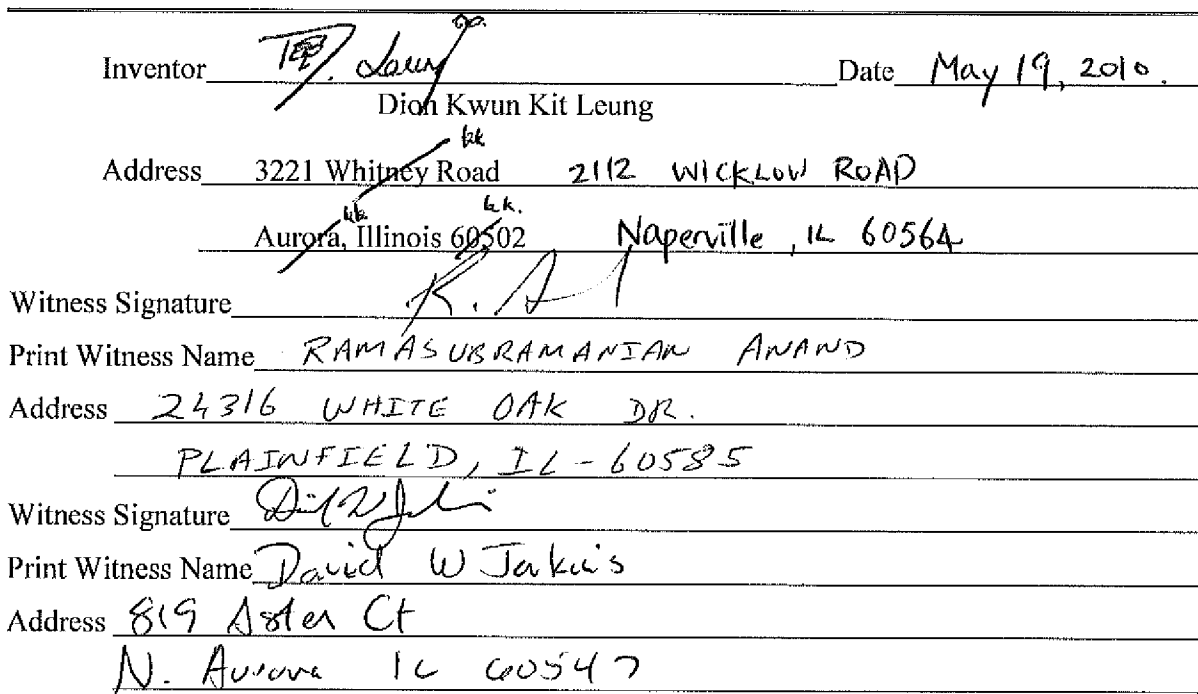 Inventor D. Leung Date May 19, 2010.
Dion Kwun Kit Leung
kk
Address 3221 Whitney Road 2112 WICKLOW ROAD
kk. kk.
Aurora, Illinois 60502 Naperville, IL 60564
Witness Signature K. A
Print Witness Name RAMASUBRAMANIAN ANAND
Address 24316 WHITE OAK DR.
PLAINFIELD, IL - 60585
Witness Signature
Print Witness Name David W Jenkins
Address 819 Aster Ct
N. Aurora IL 60542